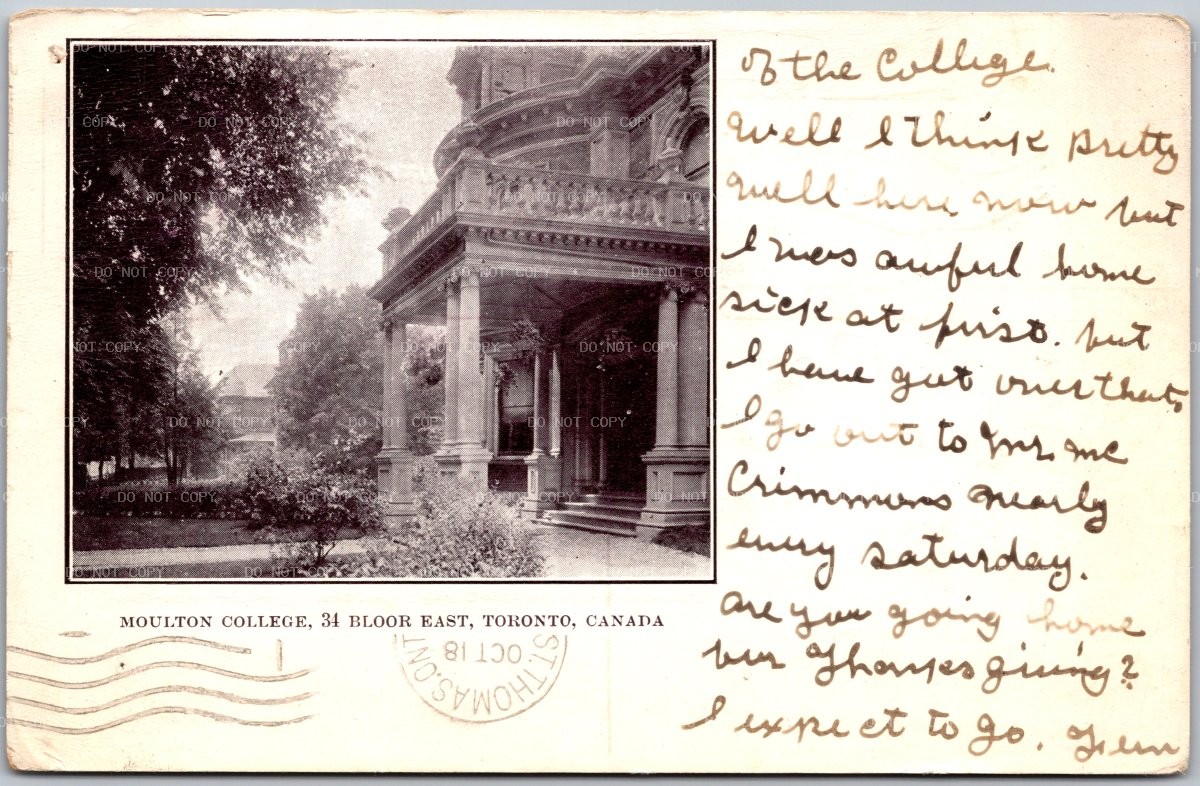 of the College.
Well I think pretty
well here now but
I was awful home
sick at first. but
I have got over that
I go out to Mr. Mc
Crimmons nearly
every saturday.
are you going home
for Thanksgiving?
I expect to go. Fern
MOULTON COLLEGE, 34 BLOOR EAST, TORONTO, CANADA
ST. THOMAS. ONT
OCT 18
1
DO NOT COPY